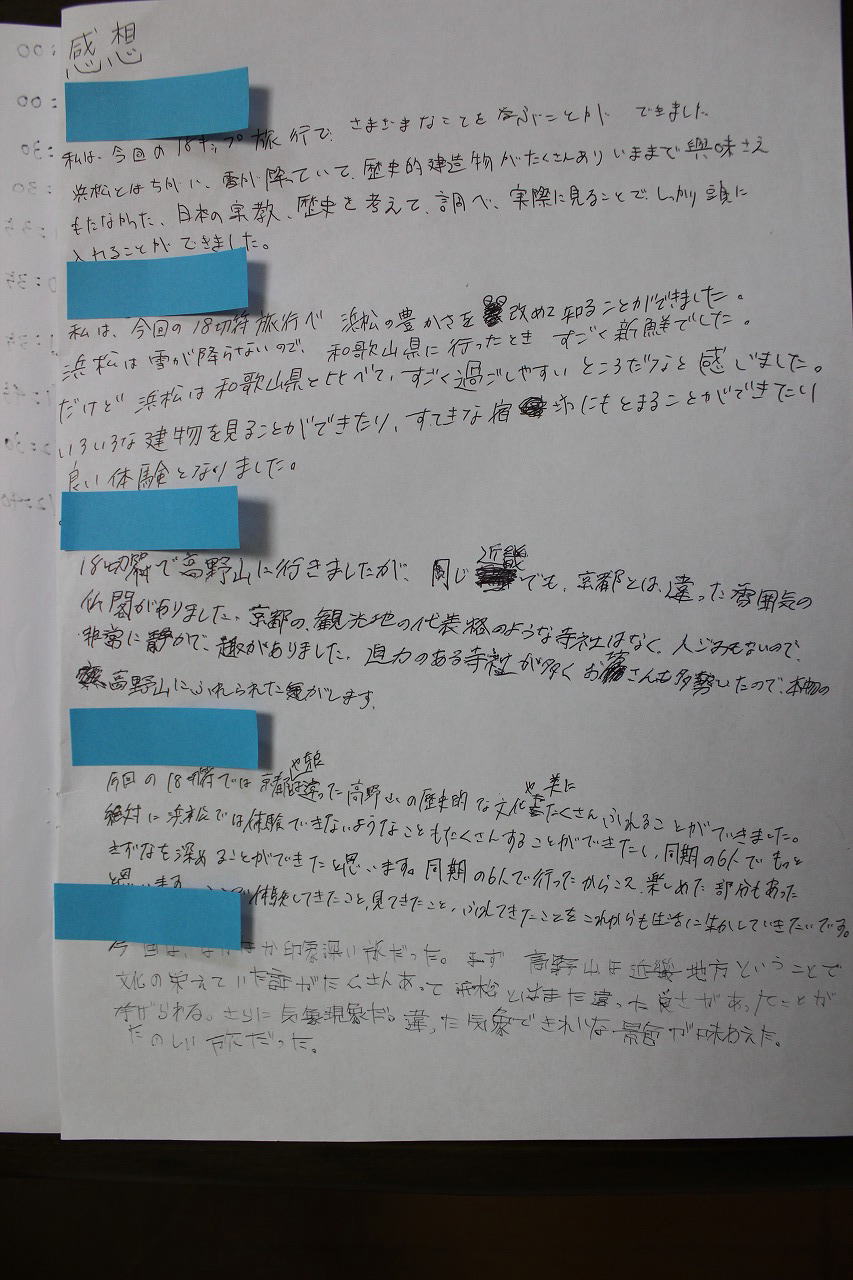 感想
私は、今回の18キップ旅行で、さまざまなことを学ぶことが できました
浜松とはちがい、雪が降ていて、歴史的建造物がたくさんありいままで興味さえ
もたなかった、日本の宗教、歴史を考えて、調べ、実際に見ることで、しっかり頭に
入れることができました。
私は、今回の18切符旅行で 浜松の豊かさを 改めて知ることができました。
浜松は雪が降らないので、和歌山県に行ったとき すごく新鮮でした。
だけど 浜松は和歌山県と比べて、すごく過ごしやすい ところだなと 感じました。
いろいろな建物を見ることができたり、すてきな宿 にもとまることができたり
良い体験となりました。
18切符で高野山に行きましたが、同じ近畿でも、京都とは、違った雰囲気の
仏閣がありました、京都の、観光地の代表格のような寺社はなく、人ごみもないので、
非常に静かで、趣がありました、迫力のある寺社が多く お坊さんも多勢いたので、本物の
高野山にふれられた気がします。
今回の18切符では京都や奈良とは違った高野山の歴史的な文化や美にたくさんふれることができました。
絶対に浜松では体験できないようなこともたくさんすることができたし、同期の6人でもっと
きずなを深めることができたと思います。同期の6人で行ったからこそ、楽しめた部分もあった
と思います 体験してきたこと、見てきたこと、ふれてきたことをこれからも生活に生かしていきたいです。
今回は、なかなか印象深い旅だった。まず 高野山は近畿地方ということで
文化の栄えていた証がたくさんあって浜松とはまた違った良さがあったことが
挙げられる。さらに気象現象だ。違った気象できれいな景色が味わえた。
たのしい旅だった。